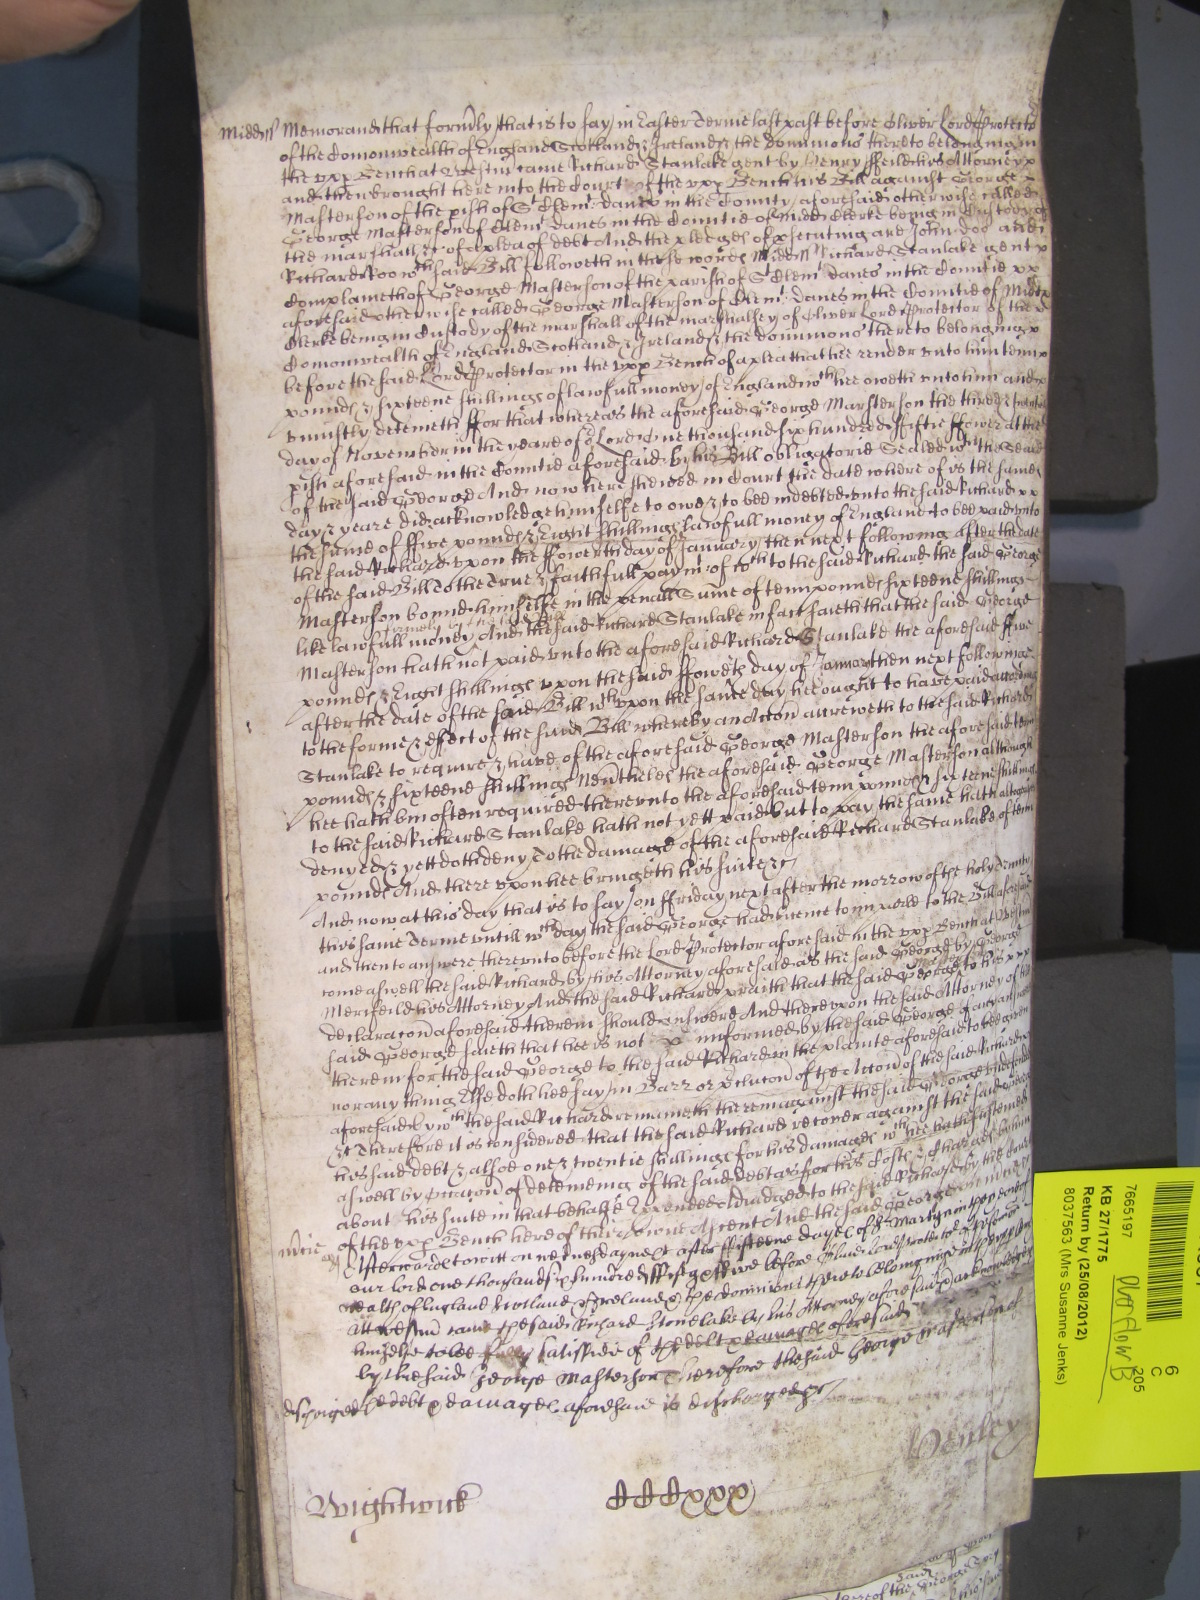 Midd ss Memorand that form̃ly that is to say in Easter Terme last past before Oliver Lord Protector
of the Com̃onwealth of England Scotland & Ireland & the dominions thereto belonging in
the vpp Bench at Westm̃ came Richard Stanlake gent by Henry Feild his Attorney
and then brought here into the Court of the vpp Bench his Bill against George
Masterson of the pish of St Clem̃ Danes in the County aforesaid otherwise called
George Masterson of Clem̃ Danes in the Countie of Midd Clerke being in Custody of
the marshall &c of a plea of debt And the pledges of psecuting are John Doo and
Richard Roo wch said Bill followeth in these words Midd ss Richard Stanlake gent
Complaineth of George Masterson of the parish of St Clem̃ Danes in the Countie
aforesaid otherwise called George Masterson of Clem̃ Danes in the Countie of Midd
Clerke being in Custody of the marshall of the marshalsey of Oliver Lord Protector of the
Com̃onwealth of England Scotland & Ireland & the dominions thereto belonging
before the said Lord Protector in the vpp Bench of a plea that hee render unto him tenn
pounds & sixteene shillings of lawfull money of England wch hee oweth unto him and
uniustly deteineth ffor that whereas the aforesaid George Masterson the three & twentieth
day of November in the yeare of or Lord One thousand six hundred & fiftie ffower at the
pish aforesaid in the Countie aforesaid by his Bill obligatorie Sealed wth the Seale
of the said George And now here shewed in Court the date whereof is the same
day & yeare did acknowledge himselfe to owe & to bee indebted unto the said Richard
the sume of ffive pounds & Eight shillings lawfull money of England to bee paid unto
the said Richard upon the ffowerth day of January then next following after the date
of the said Bill To the true & faithfull paym̃t of wch to the said Richard the said George
Masterson bound himselfe in the penall Sum̃e of tenn pounds sixteene shillings
firmely by the same Bill
like lawfull money And the said Richard Stanlake in fact saieth that the said George
Masterson hath not paid unto the aforesaid Richard Stanlake the aforesaid ffive
pounds & Eight shillings upon the said ffowerth day of January then next following
after the date of the said Bill wch upon the same day hee ought to have paid according
to the forme & effect of the said Bill whereby an Acc̃on accreweth to the said Richard
Stanlake to require & have of the aforesaid George Masterson the aforesaid tenn
pounds & sixteene shillings Nev̾theles the aforesaid George Masterson although
hee hath bin often required thereunto the aforesaid tenn pounds & sixteene shillings
to the said Richard Stanlake hath not yett paid but to pay the same hath altogether
denyed & yett doth deny To the damage of the aforesaid Richard Stanlake of tenn
pounds And thereupon hee bringeth his suite &c
And now at this day that is to say on ffriday next after the morrow of the holy Trinity
this same Terme untill wch day the said George had licence to imparle to the Bill aforesaid
and then to answere thereunto before the Lord Protector aforesaid in the vpp Bench at Westm̃
come aswell the said Richard by his Attorney aforesaid as the said George by George
Merifeild his Attorney And the said Richard prayeth that the said George to his
declarac̃on aforesaid therein should answere And thereupon the said Attorney of the
said George saieth that hee is not informed by the said George of any answere
therein for the said George to the said Richard in the plainte aforesaid to bee given
nor any thing Else doth hee say in Barr or pclusion of the Acc̃on of the said Richard
aforesaid By wch the said Richard remaineth therein against the said George undefended
&c Therefore it is considered that the said Richard recover against the said George
his said debt & alsoe one & twentie shillings for his damages wch hee hath susteined
aswell by occac̃on of deteineing of the said debt as for his Costs & Charges by him
about his suite in that behalfe Expended Adiudged to the said Richard by the Court
of the vpp Bench here of theire owne Assent And the said George in mercy
m̃cie
Afterwards to witt on wednesday next after ffifteene dayes of St Martyn in the yeare of
our lord one thousand six hundred fifty & ffive before Oliver Lord Protector of the Common
wealth of England Scotland & Ireland & the dominions thereto belonginge in the vpp Bench
att Westm̃ came the said Richard Stonelake by his Attorney aforesaid & acknowledged
himselfe to bee fully satisfied of the debt & damages aforesaid
by the said George Masterson Therefore the said George Masterson of
the debt & damages aforesaid is discharged &c
Henley
Wightwick
dddxxx
6
C
205
7665197
KB 27/1775
Return by (25/08/2012)
8037563 (Mrs Susanne Jenks)
overflow B